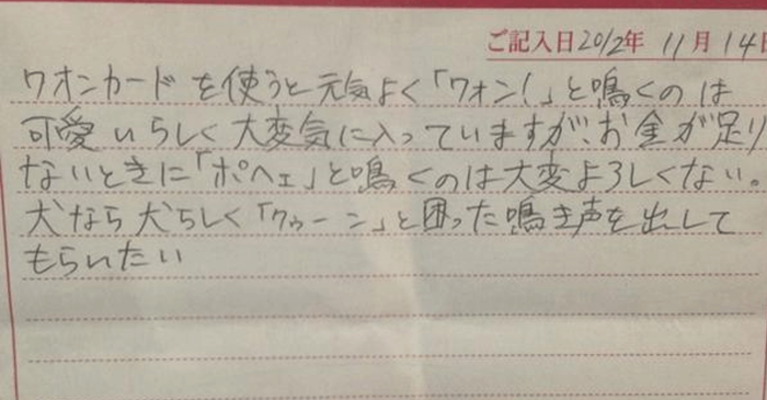 ご記入日2012年 11月 14日
ワオンカードを使うと元気よく「ワォン!」と鳴くのは
可愛いらしく大変気に入っていますが、お金が足り
ないときに「ポヘェ」と鳴くのは大変よろしくない。
犬なら犬らしく「クゥーン」と困った鳴き声を出して
もらいたい